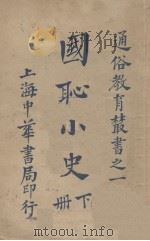 通俗教育叢書之一
國恥小史
下冊
上海中華書局印行
www.duxiu.com